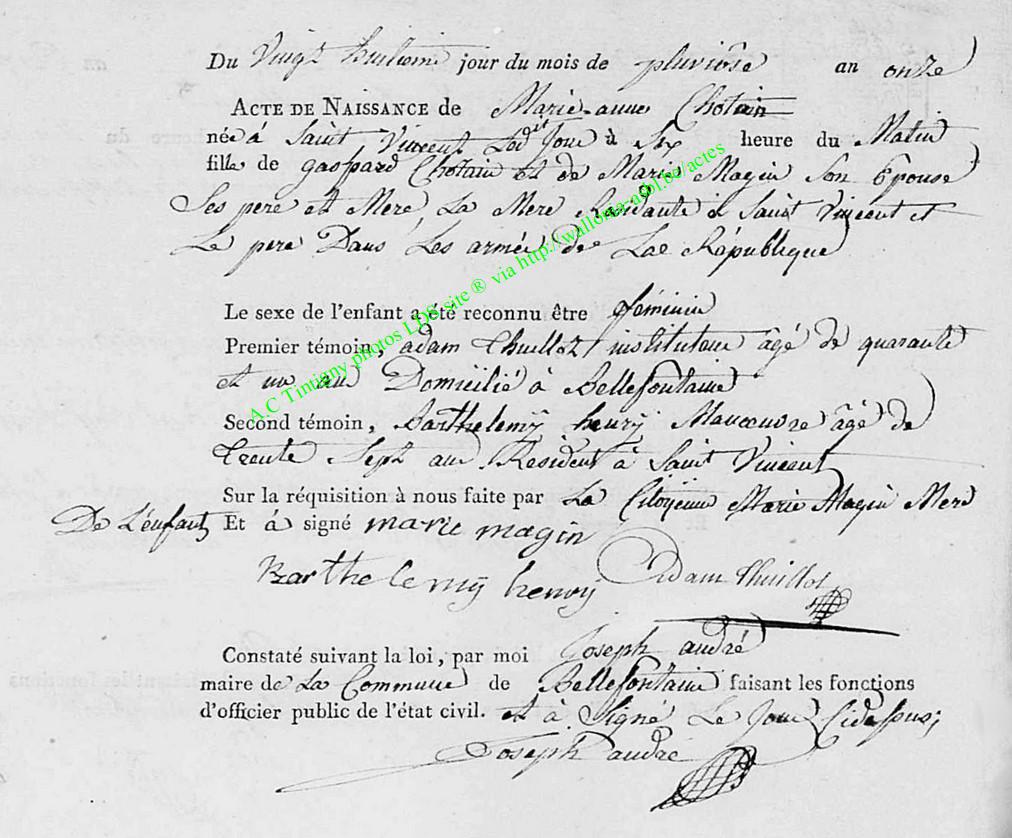 Du Vingt huitieme jour du mois de pluviose an onze
ACTE DE NAISSANCE de Marie-anne Chotain
née à Saint Vincent Led dit Jour à Six heure du Matin
fille de gaspard Chotain et de Marie Magin Son Epouse
Ses pere et Mere, La Mere Residante à Saint Vincent et
Le pere Dans Les armée de Lae République
Le sexe de l'enfant a été reconnu être féminin
Premier témoin, adam thuillot instituteur âgé de quarante
et un an Domicilié à Bellefontaine
Second témoin, Barthelemÿ henrÿ Manoeuvre âgé de
trente Sept an Resident à Saint Vincent
Sur la réquisition à nous faite par La Citoyenne Marie Magin Mere
De L'enfant Et à signé marie magin
Barthelemÿ henrÿ Adam thuillot
Constaté suivant la loi, par moi Joseph andré
maire de La Commune de Bellefontaine faisant les fonctions
d'officier public de l'état civil. et à Signé Le Jour Cidessus;
Joseph andré
A.C Tintigny photos LDS site ® via http://wallonia-asbl.be/actes